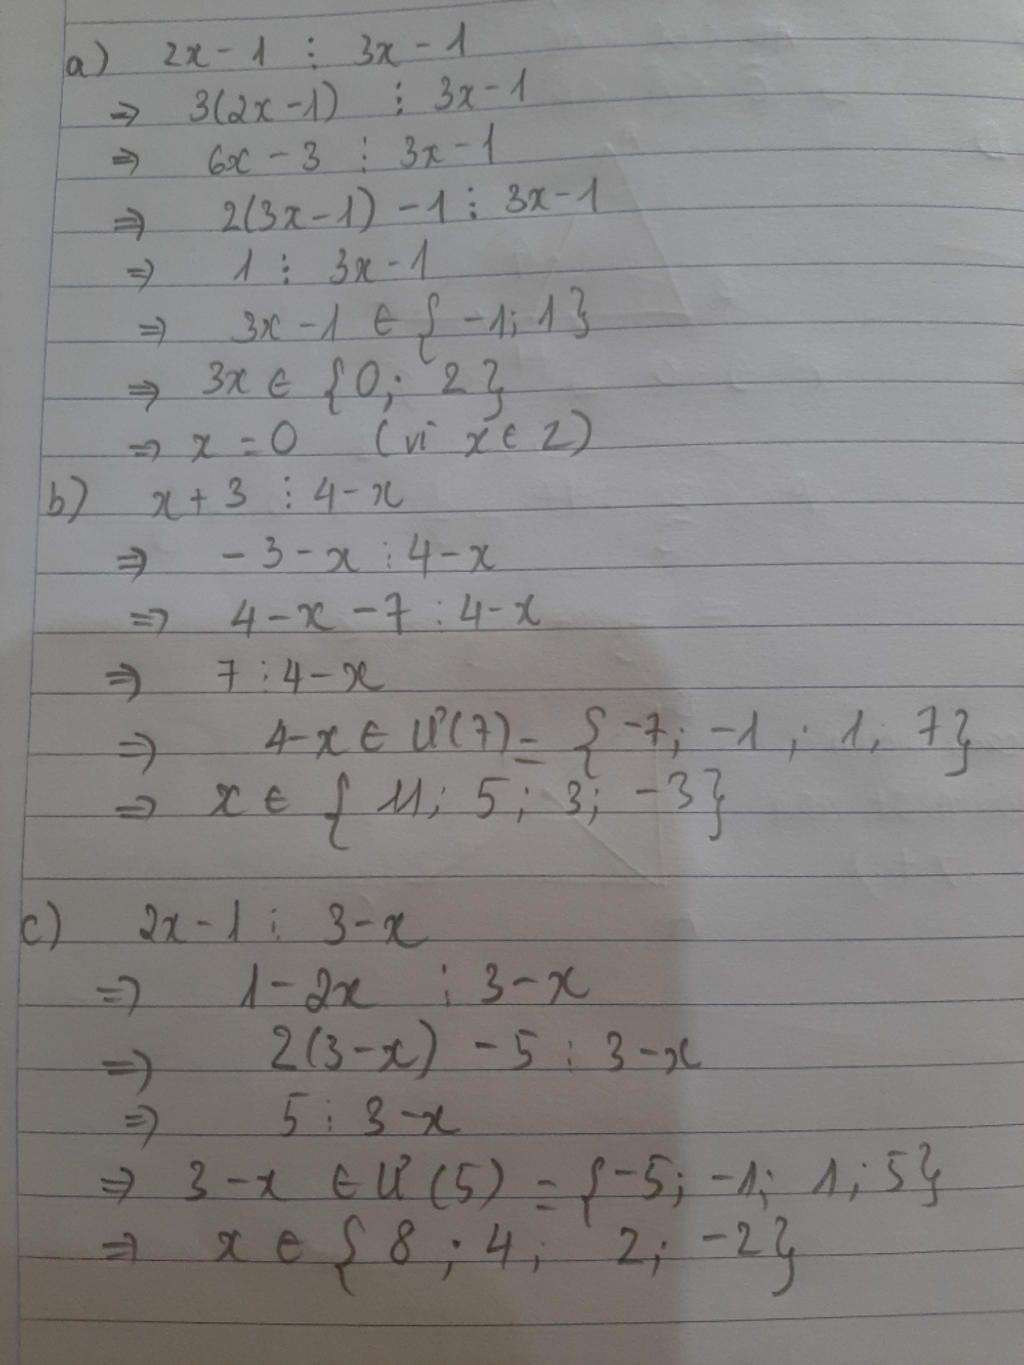 a) 2x - 1 ⋮ 3x - 1
⇒ 3(2x - 1) ⋮ 3x - 1
⇒ 6x - 3 ⋮ 3x - 1
⇒ 2(3x - 1) - 1 ⋮ 3x - 1
⇒ 1 ⋮ 3x - 1
⇒ 3x - 1 ∈ { -1; 1}
⇒ 3x ∈ {0; 2}
⇒ x = 0 (vì x ∈ Z)
b) x + 3 ⋮ 4 - x
⇒ - 3 - x ⋮ 4 - x
⇒ 4 - x - 7 ⋮ 4 - x
⇒ 7 ⋮ 4 - x
⇒ 4 - x ∈ Ư(7) = { -7; -1; 1; 7}
⇒ x ∈ { 11; 5; 3; -3}
c) 2x - 1 ⋮ 3 - x
⇒ 1 - 2x ⋮ 3 - x
⇒ 2(3 - x) - 5 ⋮ 3 - x
⇒ 5 ⋮ 3 - x
⇒ 3 - x ∈ Ư(5) = {-5; -1; 1; 5}
⇒ x ∈ { 8; 4; 2; -2}